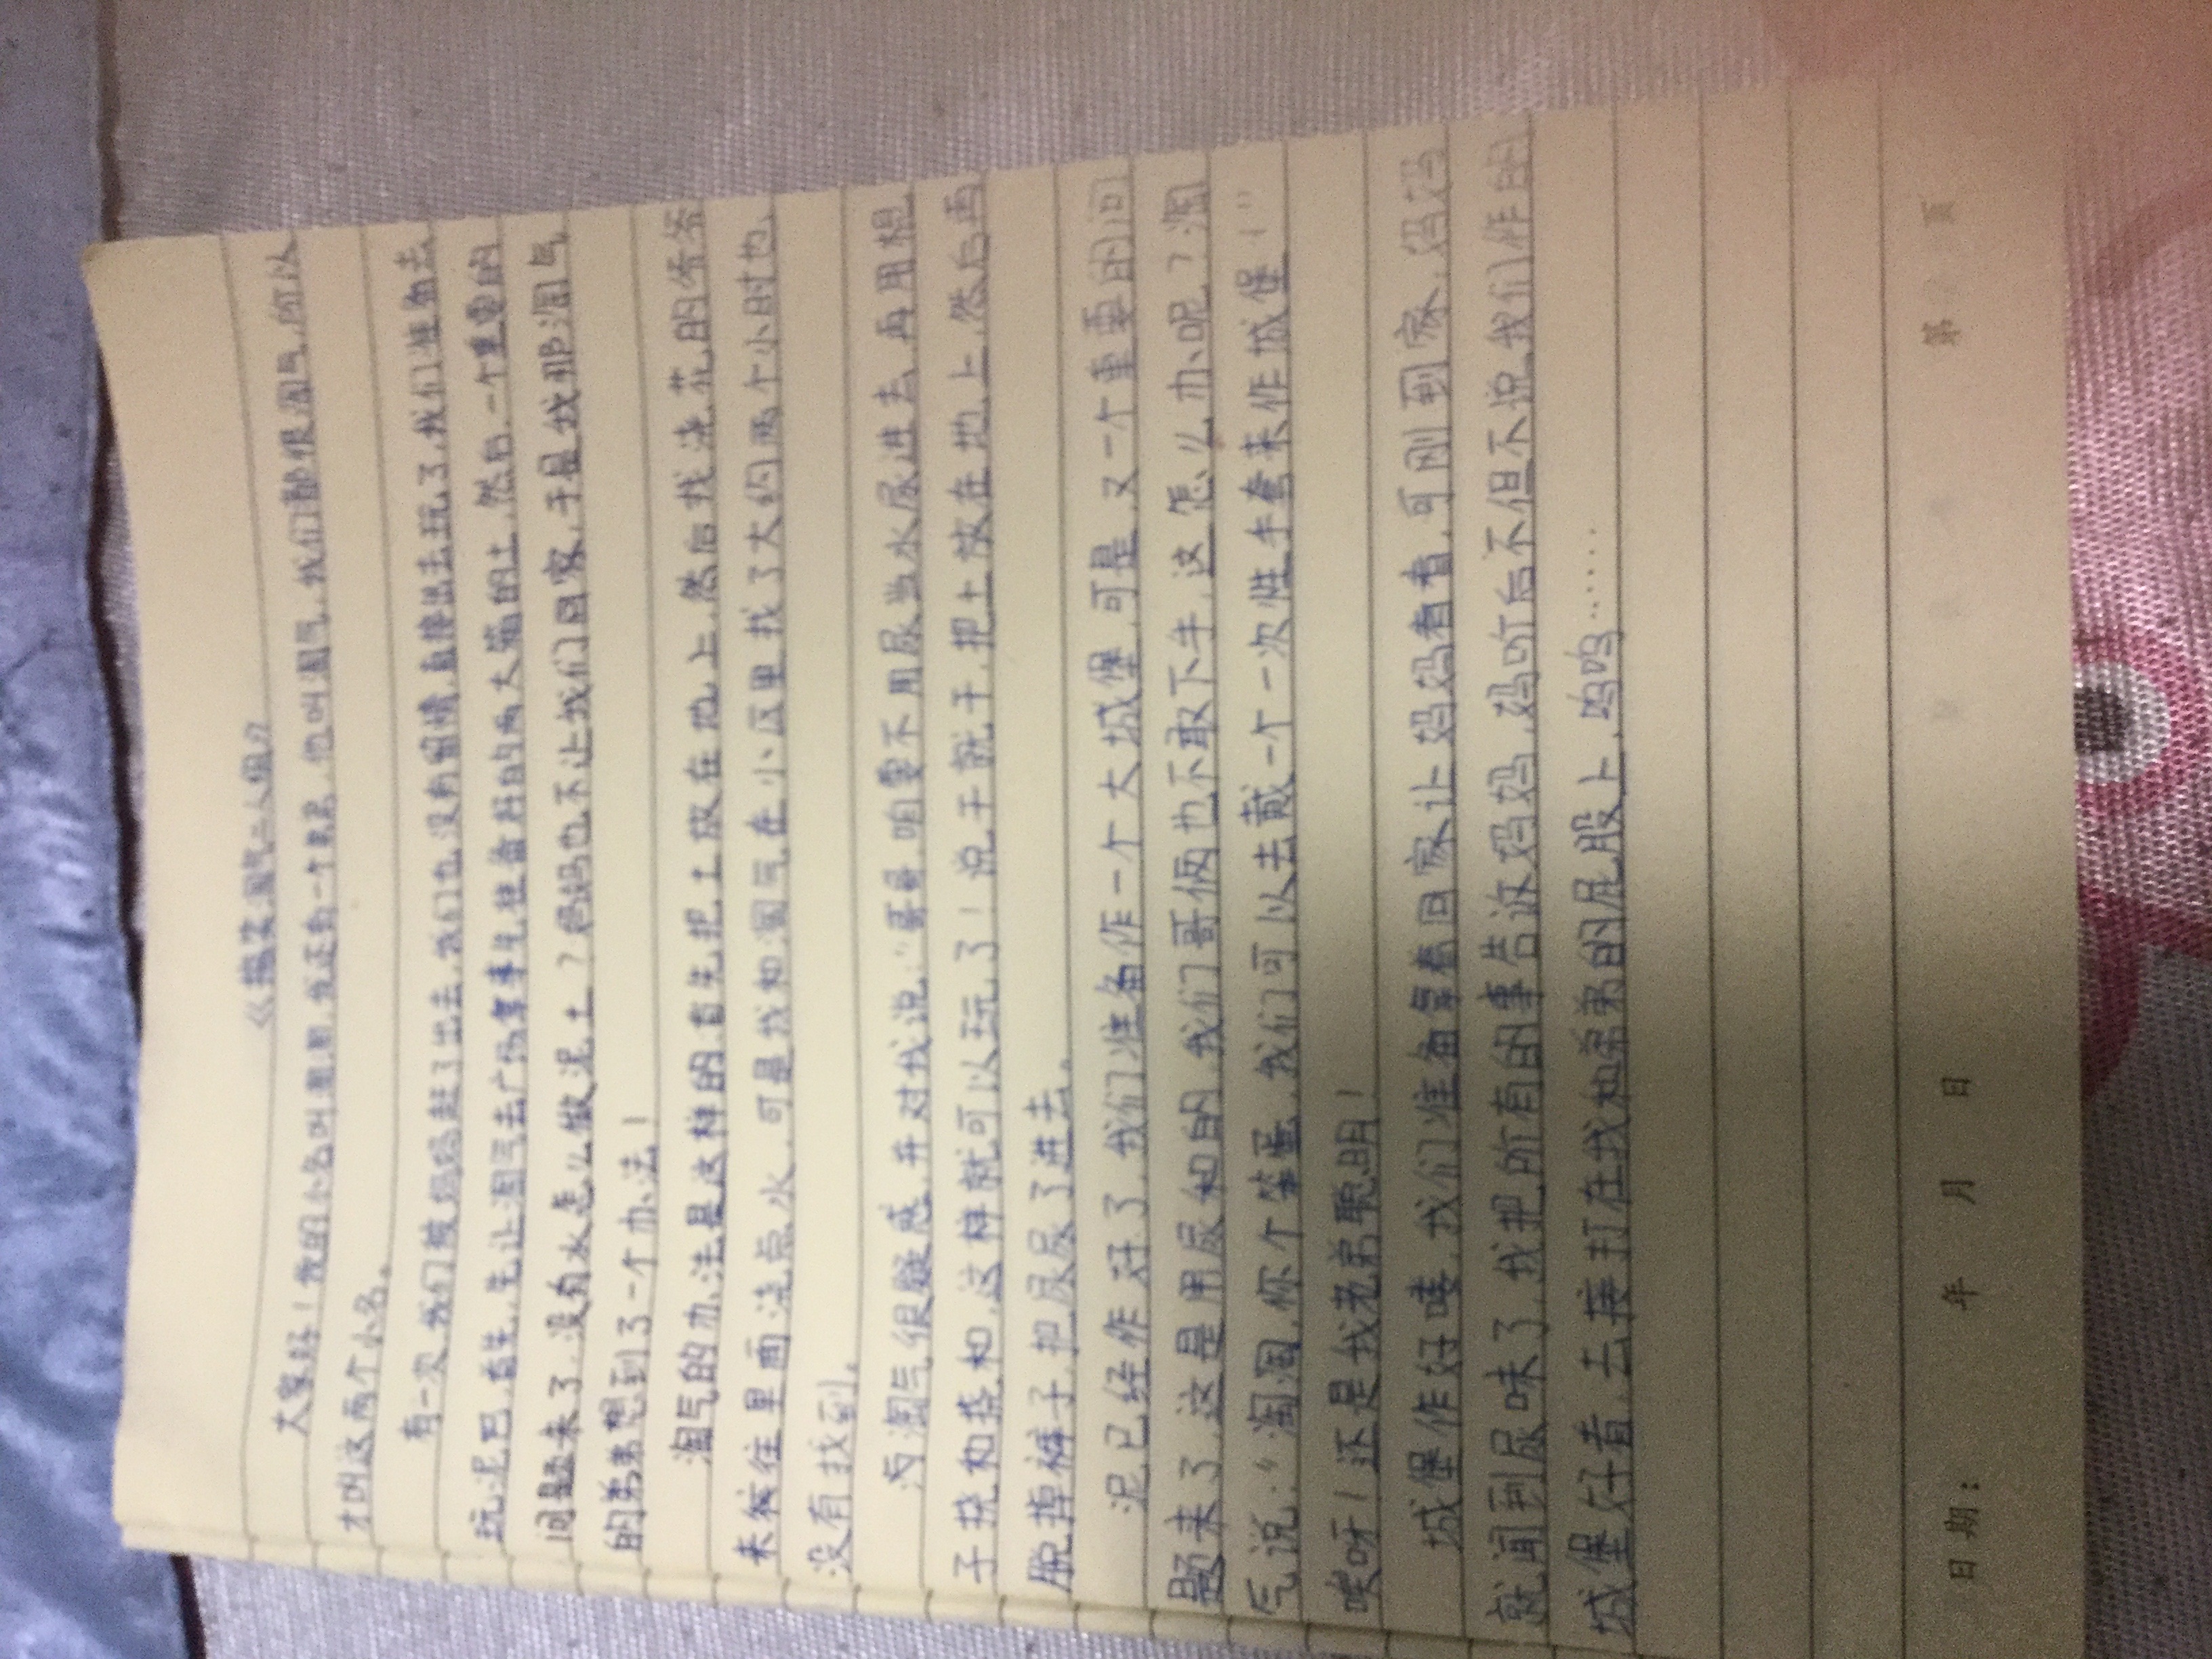 《搞笑淘气二人组》
大家好！我的小名叫淘淘，我还有一个弟弟，他叫淘气，我们都很淘气，所以
才叫这两个小名。
有一次，我们被妈妈赶了出去，我们也没有留情，直接出去玩了，我们准备去
玩泥巴，首先，先让淘气去广场拿事先准备好的两大箱的土，然后，一个重要的
问题来了，没有水怎么做泥土？爸妈也不让我们回家，于是我那淘气
的弟弟想到了一个办法！
淘气的办法是这样的，首先，把土放在地上，然后找浇花的
来往里面浇点水，可是我和淘气在小区里找了大约两个小时也
没有找到。
淘气很疑惑，并对我说：“哥哥，咱要不用尿当水尿进去，再用棍
子挠和挠和，这样就可以玩了！说干就干，把土放在地上，然后再
脱掉裤子，把尿尿了进去。
泥已经作好了，我们准备作一个大城堡，可是，又一个重要的问
题来了，这是用尿和的，我们哥俩也不敢下手，这怎么办呢？淘
气说：“淘淘，你个笨蛋，我们可以去戴一个一次性手套来作城堡！”
唉呀！还是我老弟聪明！
城堡作好喽，我们准备拿着回家让妈妈看看，可刚到家，妈妈
就闻到尿味了，我把所有的事告诉妈妈，妈听后不但不说我们作的
城堡好看，去接打在我和弟弟的屁股上，呜呜……
日期： 年 月 日
第 页